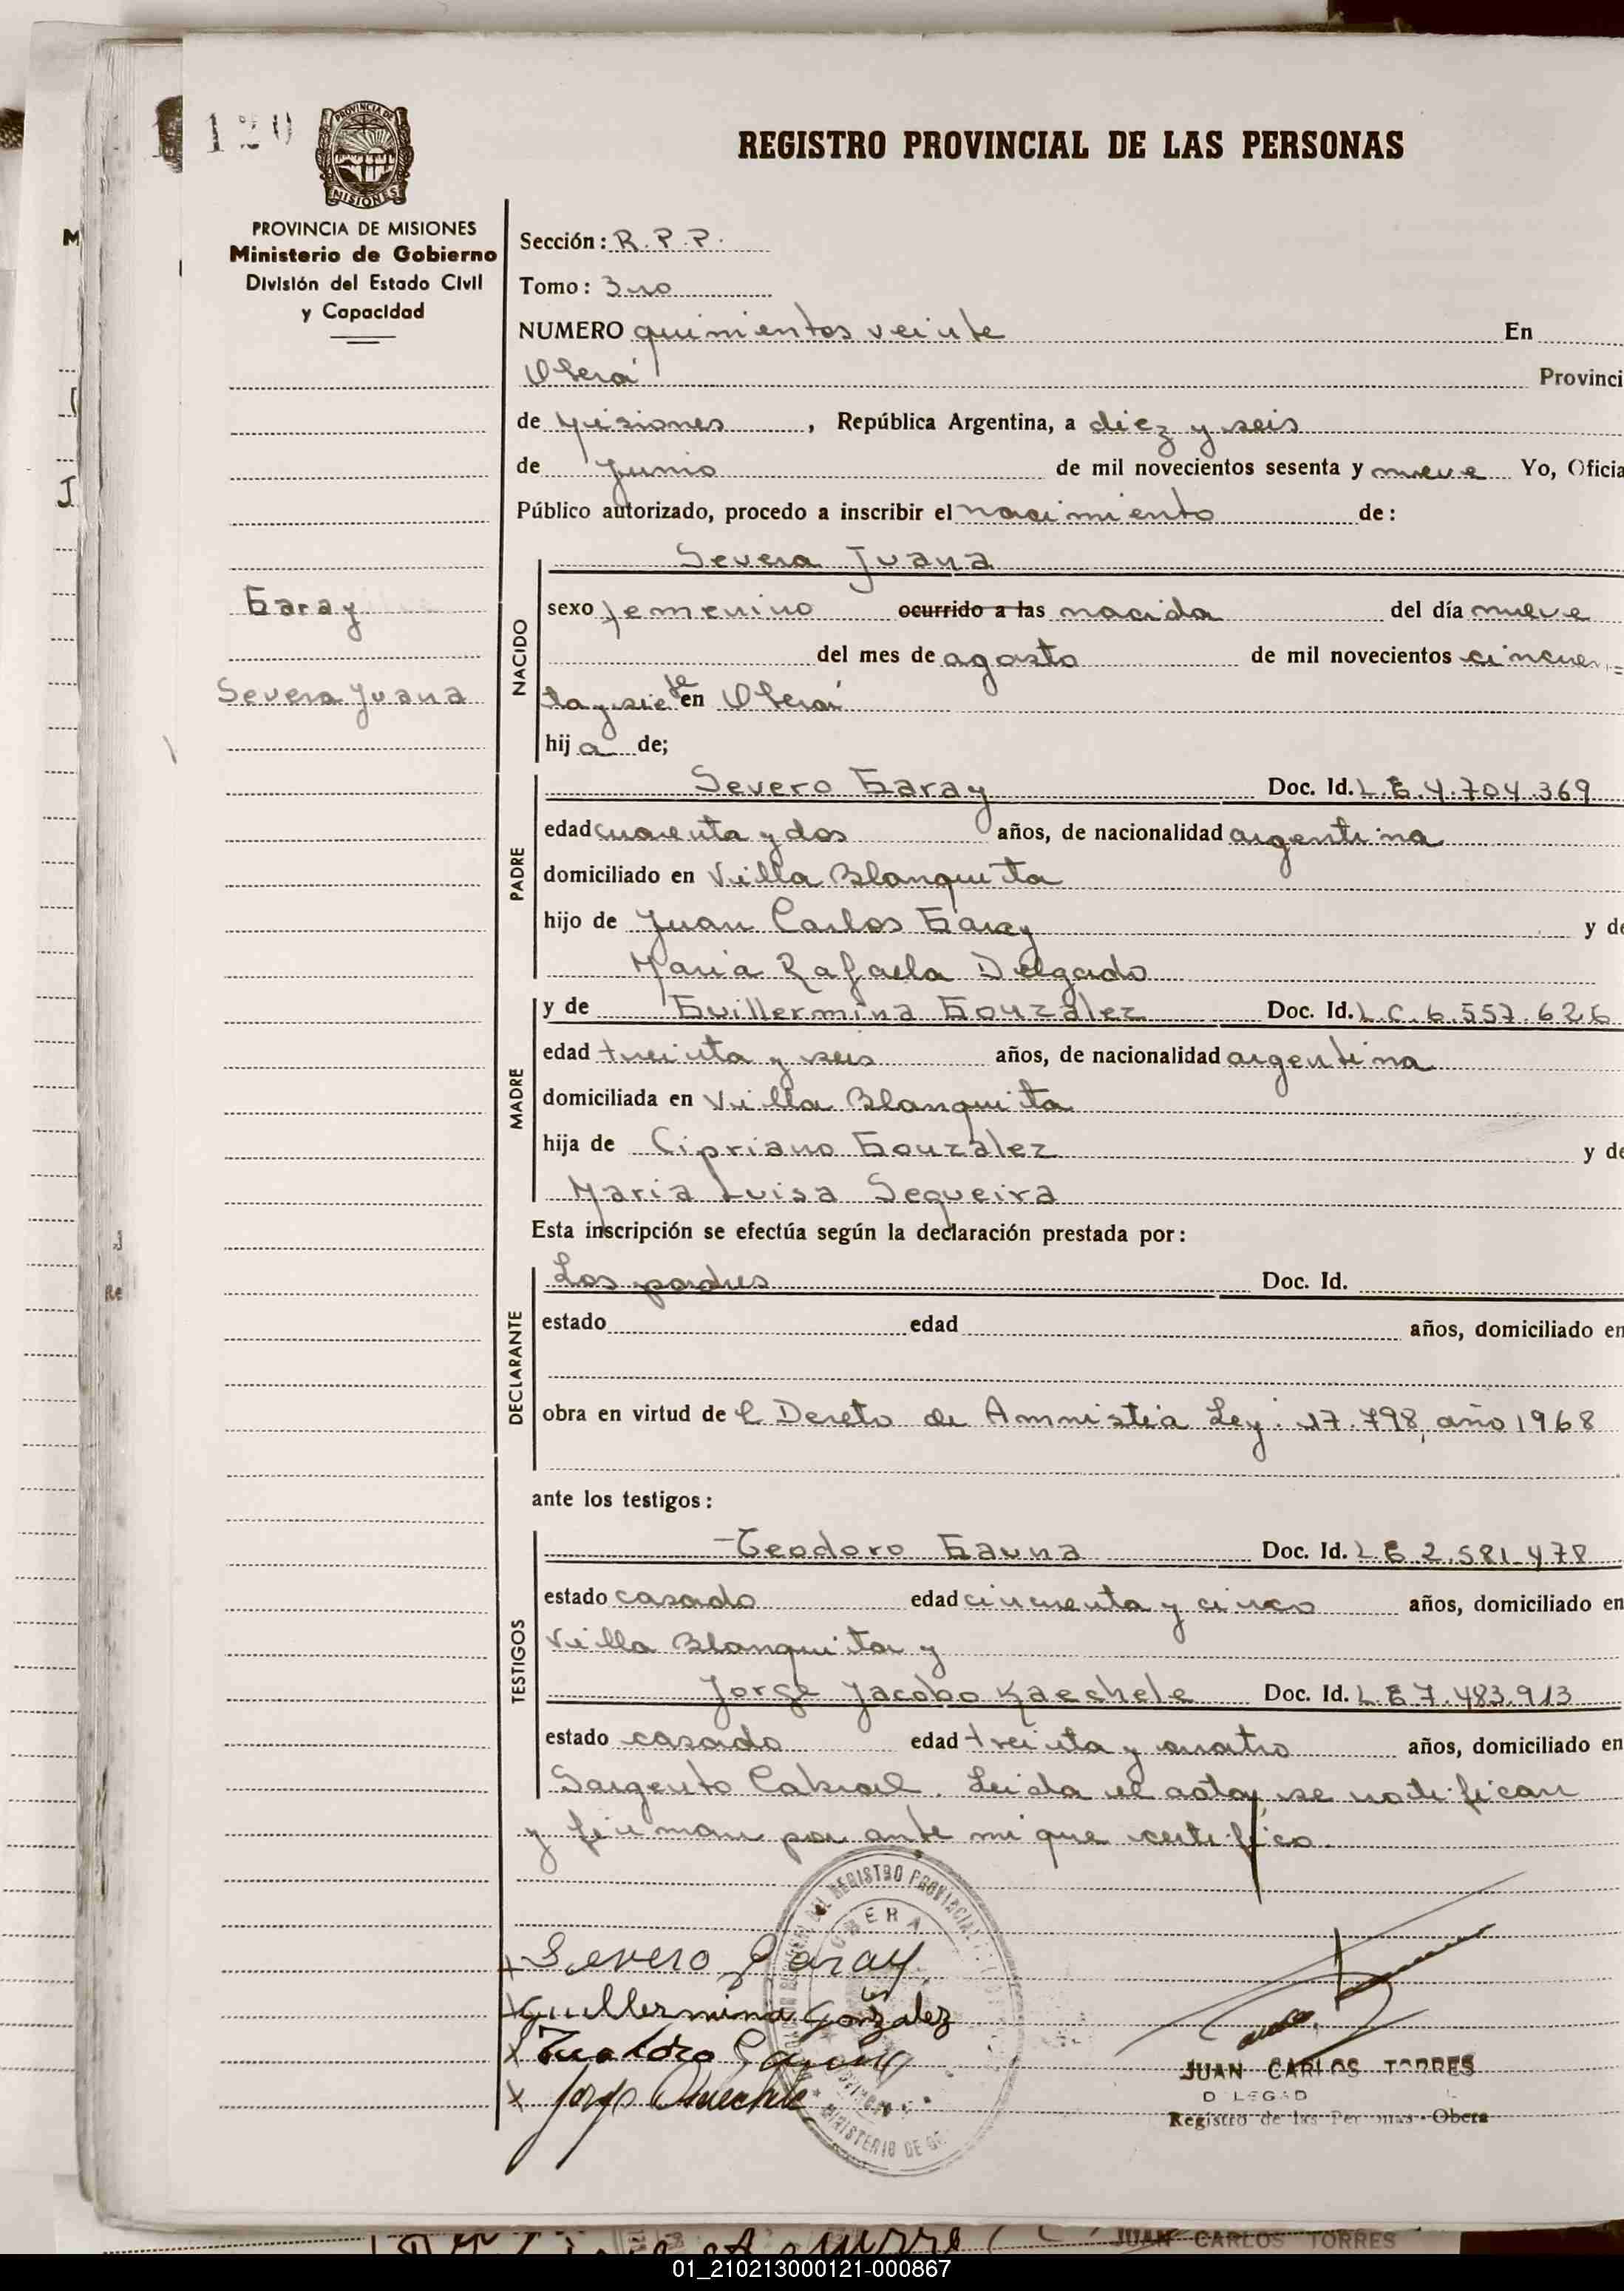 120
PROVINCIA DE
MISIONES
REGISTRO PROVINCIAL DE LAS PERSONAS
PROVINCIA DE MISIONES
Ministerio de Gobierno
División del Estado Civil
y Capacidad
Sección: R.P.P.
Tomo: 3ro
NUMERO quinientos veinte En
Oberá Provinci
de Misiones, República Argentina, a diez y seis
de Junio de mil novecientos sesenta y nueve Yo, Oficia
Público autorizado, procedo a inscribir el nacimiento de:
Garay
Severa Juana
NACIDO
Severa Juana
sexo femenino ocurrido a las nacida del día nueve
del mes de agosto de mil novecientos cincuen=
ta y siete en Oberá
hija de;
PADRE
Severo Garay Doc. Id. L.E. 4.704.369
edad cuarenta y dos años, de nacionalidad argentina
domiciliado en Villa Blanquita
hijo de Juan Carlos Garay y de
Maria Rafaela Delgado
MADRE
y de Guillermina González Doc. Id. L.C. 6.557.626
edad treinta y seis años, de nacionalidad argentina
domiciliada en Villa Blanquita
hija de Cipriano González y de
Maria Luisa Sequeira
Esta inscripción se efectúa según la declaración prestada por:
DECLARANTE
Los padres Doc. Id.
estado edad años, domiciliado en
obra en virtud de l Dereto de Amnistia Ley: 17.798, año 1968
ante los testigos:
TESTIGOS
Teodoro Gauna Doc. Id. L E 2.581.478
estado casado edad cincuenta y cinco años, domiciliado en
Villa Blanquita y
Jorge Jacobo Kaechele Doc. Id. L E 7.483.913
estado casado edad treinta y cuatro años, domiciliado en
Sargento Cabral. Leida el acta, se notifican
y firman por ante mi que certifico.
DEL REGISTRO PROVINCIAL
OBERA
MINISTERIO DE
Severo Garay
Guillermina González
Teodoro Gauna
Jorge Kaechele
JUAN CARLOS TORRES
Registro de las Personas - Obera
JUAN CARLOS TORRES
01_210213000121-000867